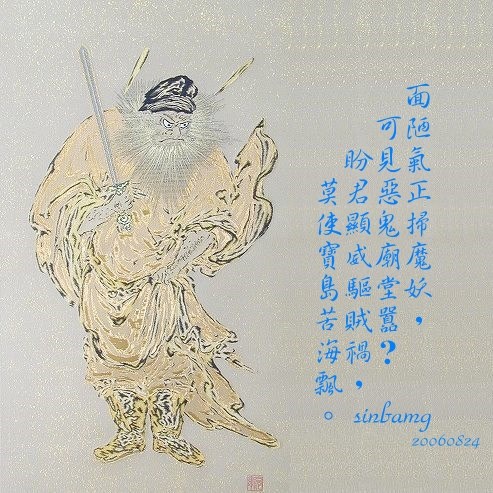 面陋氣正掃魔妖，
可見惡鬼廟堂囂？
盼君顯威驅賊禍，
莫使寶島苦海飄。
sinbamg
20060824